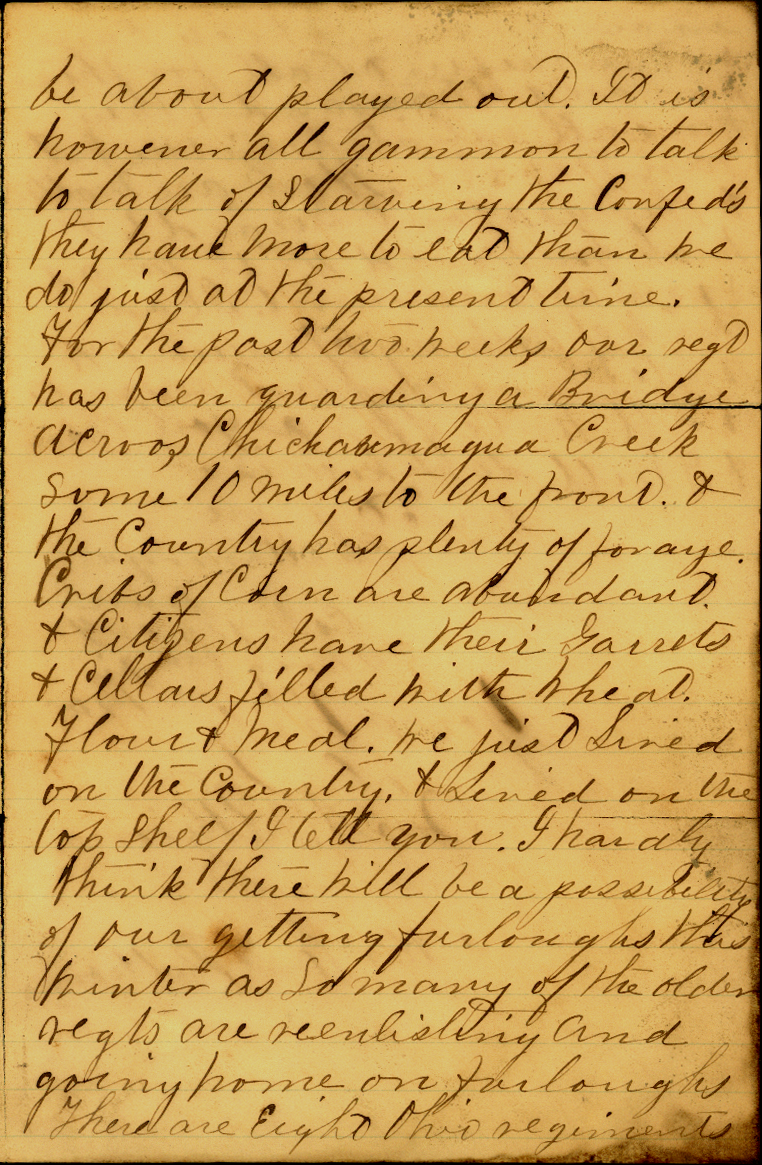 be about played out. It is
however all gammon to talk
to talk of Starving the Confed's
they have more to eat than we
do just at the present time.
For the past two weeks our regt
has been guarding a Bridge
across Chickaumagua Creek
some 10 miles to the front. &
the Country has plenty of forage.
Cribs of Corn are abundant.
& Citizens have their Garrets
& Cellars filled with wheat.
Flour & Meal. we just Lived
on the Country. & Lived on the
top Shelf I tell you. I hardly
think there will be a possibility
of our getting furloughs this
winter as so many of the older
regts are reenlisting and
going home on furloughs
There are Eight Ohio regiments